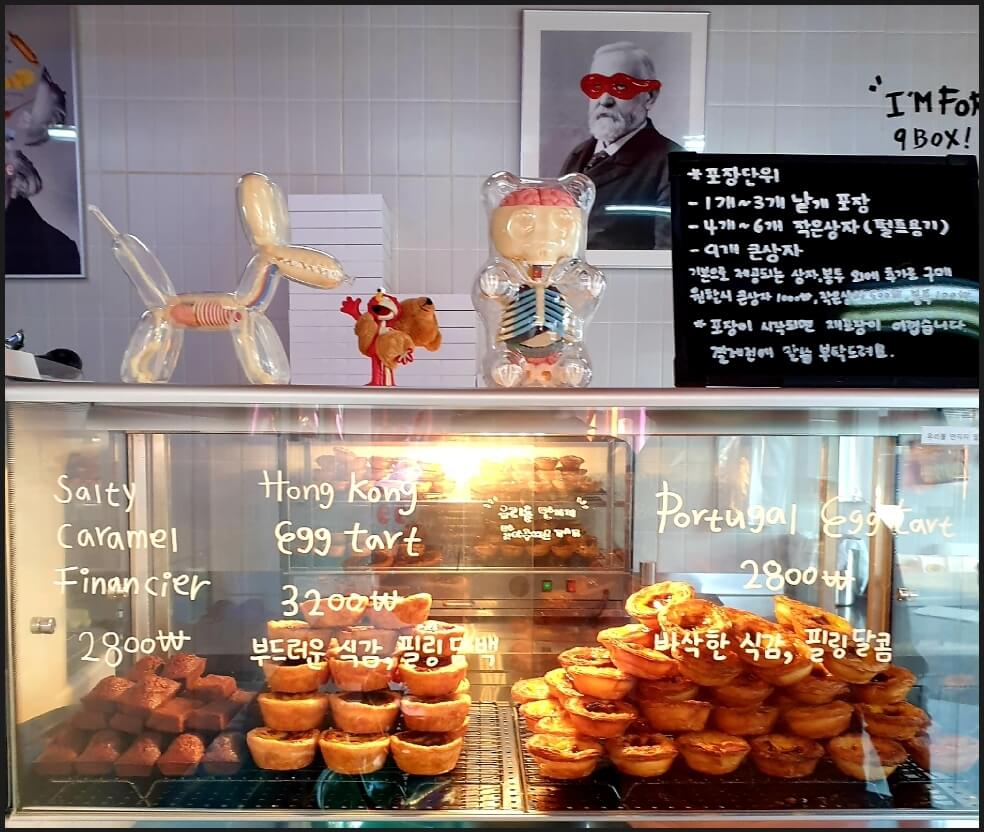 "I'M FOR
9BOX!
*포장단위
-1개~3개 낱개 포장
-4개~6개 작은상자(펄프용기)
-9개 큰상자
기본으로 제공되는 상자,봉투 외에 추가로 구매
원할시 큰상자 1000₩,작은상자 500₩, 봉투 100₩
*포장이 시작되면 재포장이 어렵습니다
결제전에 말씀 부탁드려요.
Salty
Caramel
Financier
2800₩
Hong Kong
Egg tart
3200₩
부드러운 식감, 필링 담백
Portugal Egg tart
2800₩
바삭한 식감, 필링달콤